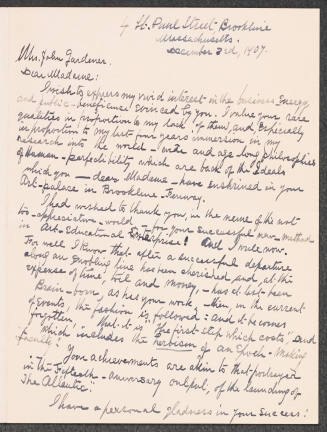 4 St. Paul Street-Brookline
Massachusetts.
December 3rd, 1907.
Mrs. John Gardener.
Dear Madame:
I wish to express my vivid interest in the business energy
and public-beneficence evinced by you. I value your rare
qualities in proportion to my lack of them, and especially
in proportion to my last four years immersion in my
research into the world-wide and age-long philosophies
of human-perfectibility which are back of the Ideals
which you — dear Madame — have enshrined in your
Art-palace in Brookline-Fenway.
I had wished to thank you, in the name of the not
too-appreciative-world — for your successful new-method
in Art-Educational Enterprise! And I write now.
For well I know that after a successful departure
along an ennobling line has been cherished and, at the
expense of time, toil and money, — has at last been
Brain-born, as has your work, — then in the current
of events, the fashion is followed: and it becomes
forgotten that it is "The first step which costs", and
which includes the heroism of an Epoch-Making
faculty!
Your achievements are akin to that portrayed
in the Fiftieth-Anniversary output, of the launching of
"The Atlantic".
I have a personal gladness in your success: